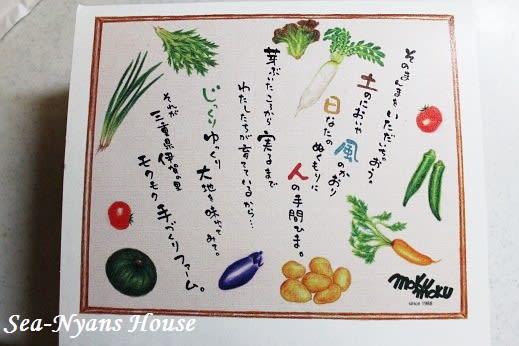 そのまんまをいただいちゃおう。
土のにおいや風のかおり
日なたのぬくもりに
人の手間ひま。
芽ぶいたころから実るまで
わたしたちが育てているから…
じっくりゆっくり大地を味わってみて。
それが
三重県伊賀の里
モクモク手づくりファーム。
MOKUMOKU
since 1988
Sea-Nyans House